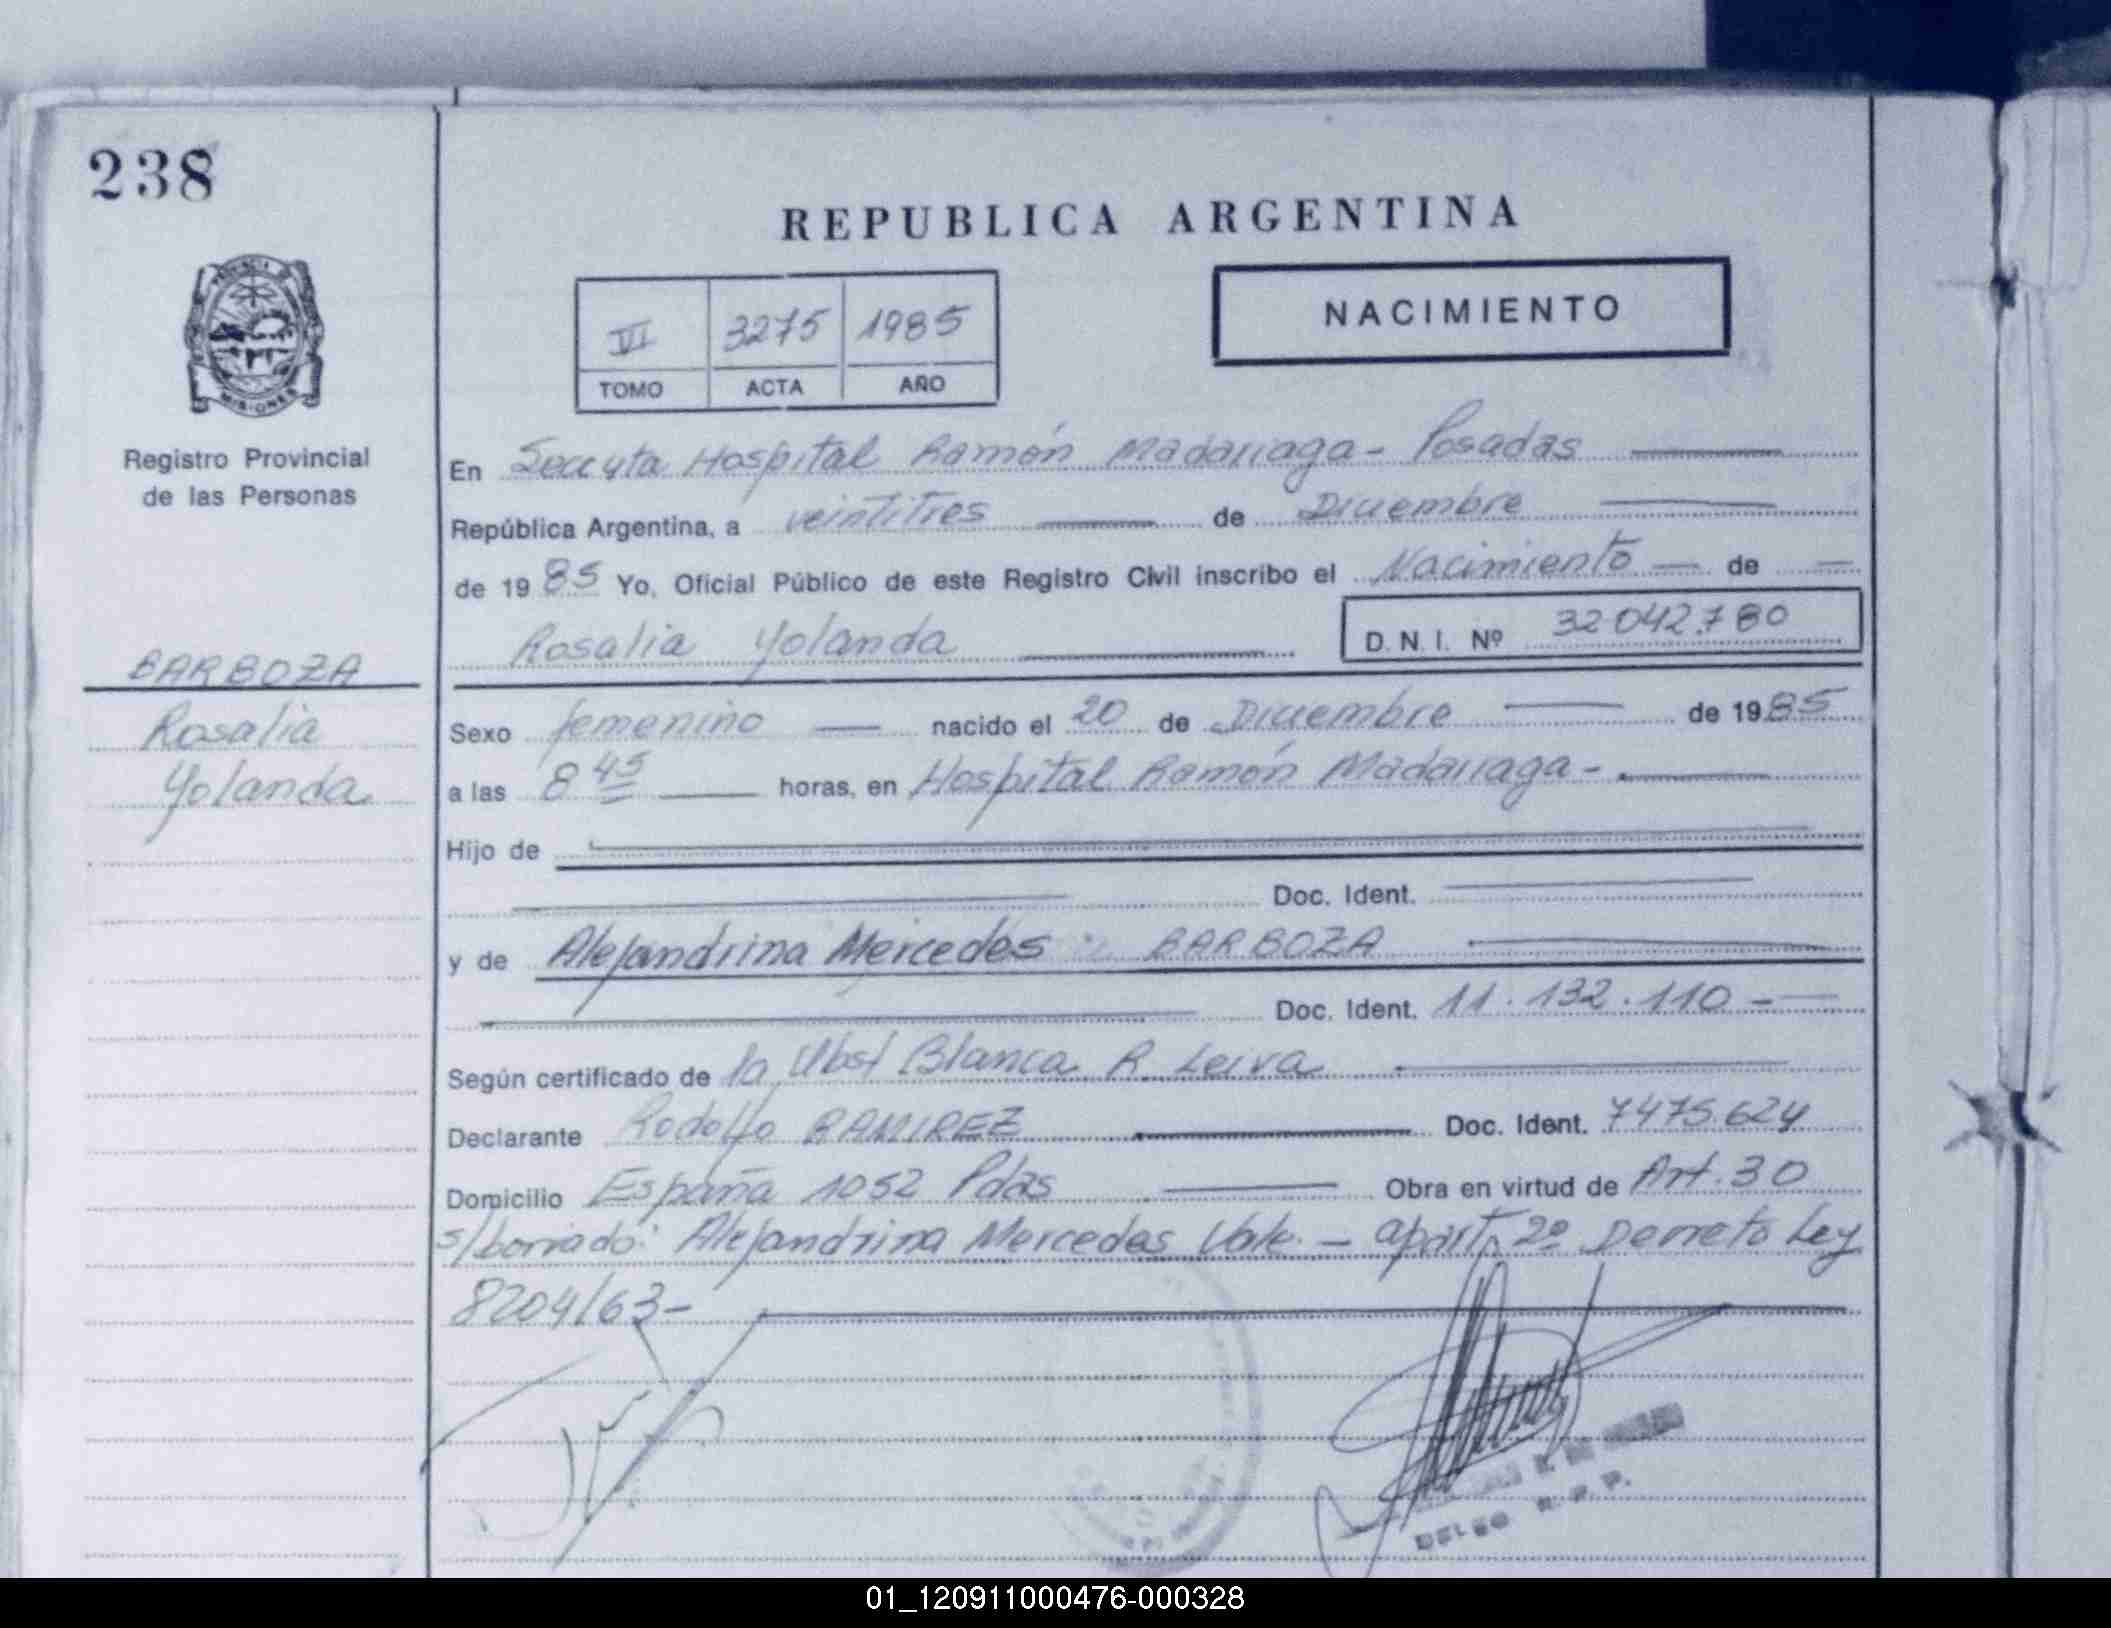 238
REPUBLICA ARGENTINA
NACIMIENTO
VI 3275 1985
TOMO ACTA AÑO
PROVINCIA
MISIONES
Registro Provincial
de las Personas
En Hospital Ramón Madariaga - Posadas
República Argentina, a veintitres de Diciembre
de 1985 Yo, Oficial Público de este Registro Civil inscribo el Nacimiento de
Rosalia Yolanda D. N. I. Nº 32042.780
BARBOZA
Rosalia
Yolanda
Sexo femenino nacido el 20 de Diciembre de 1985
a las 8 45 horas, en Hospital Ramón Madariaga -
Hijo de
Doc. Ident.
y de Alejandrina Mercedes BARBOZA
Doc. Ident. 11.132.110 -
Según certificado de la Obst Blanca R. Leiva
Declarante Rodolfo RAMIREZ Doc. Ident. 7475.624
Domicilio España 1052 Pdas Obra en virtud de Art. 30
s/borrado: Alejandrina Mercedes Vale. - apart. 2º Decreto Ley
8204/63-
DELEG R. P. P.
01_120911000476-000328